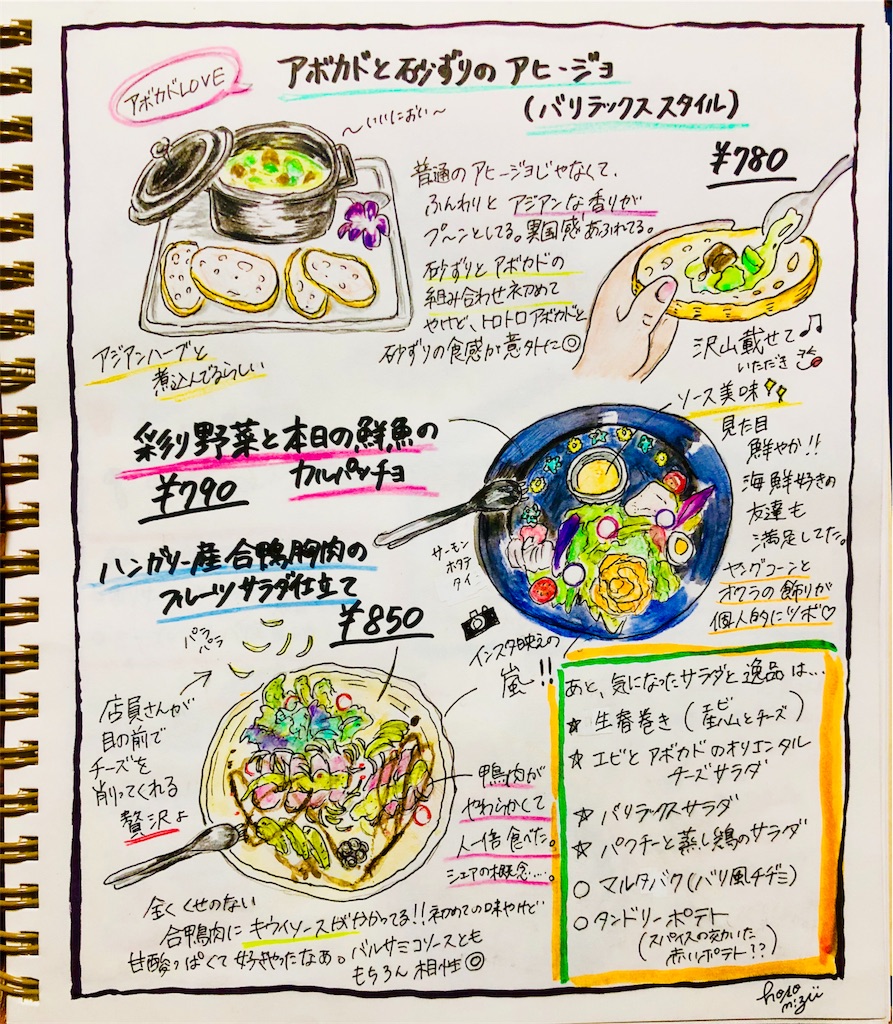 アボカドLOVE
アボカドと砂ずりのアヒージョ
(バリラックススタイル)
¥780
〜いいにおい〜
普通のアヒージョじゃなくて、
ふんわりとアジアンな香りが
プ〜ンとしてる。異国感あふれてる。
砂ずりとアボカドの
組み合わせ初めて
やけど、トロトロアボカドと
砂ずりの食感が意外に◎
アジアンハーブと
煮込んでるらしい
沢山載せて♫
いただき
彩り野菜と本日の鮮魚の
カルパッチョ
¥790
ソース美味
見た目
鮮やか!!
海鮮好きの
友達も
満足してた。
ヤングコーンと
オクラの飾りが
個人的にツボ♡
サーモン
ホタテ
タイ
インスタ映えの
嵐!!
ハンガリー産合鴨胸肉の
フルーツサラダ仕立て
¥850
パラパラ
店員さんが
目の前で
チーズを
削ってくれる
贅沢よ
鴨肉が
やわらかくて
人一倍食べた。
シェアの概念...。
全くくせのない
合鴨肉にキウイソースがかかってる!!初めての味やけど
甘酸っぱくて好きやったなぁ。バルサミコソースとも
もちろん相性◎
あと、気になったサラダと逸品は...
☆ 生春巻き (エビ 生ハムとチーズ)
☆ エビとアボカドのオリエンタル
チーズサラダ
☆ バリラックスサラダ
☆ パクチーと蒸し鶏のサラダ
○ マルタバク(バリ風チヂミ)
○ タンドリーポテト
(スパイスの効いた
赤いポテト??)